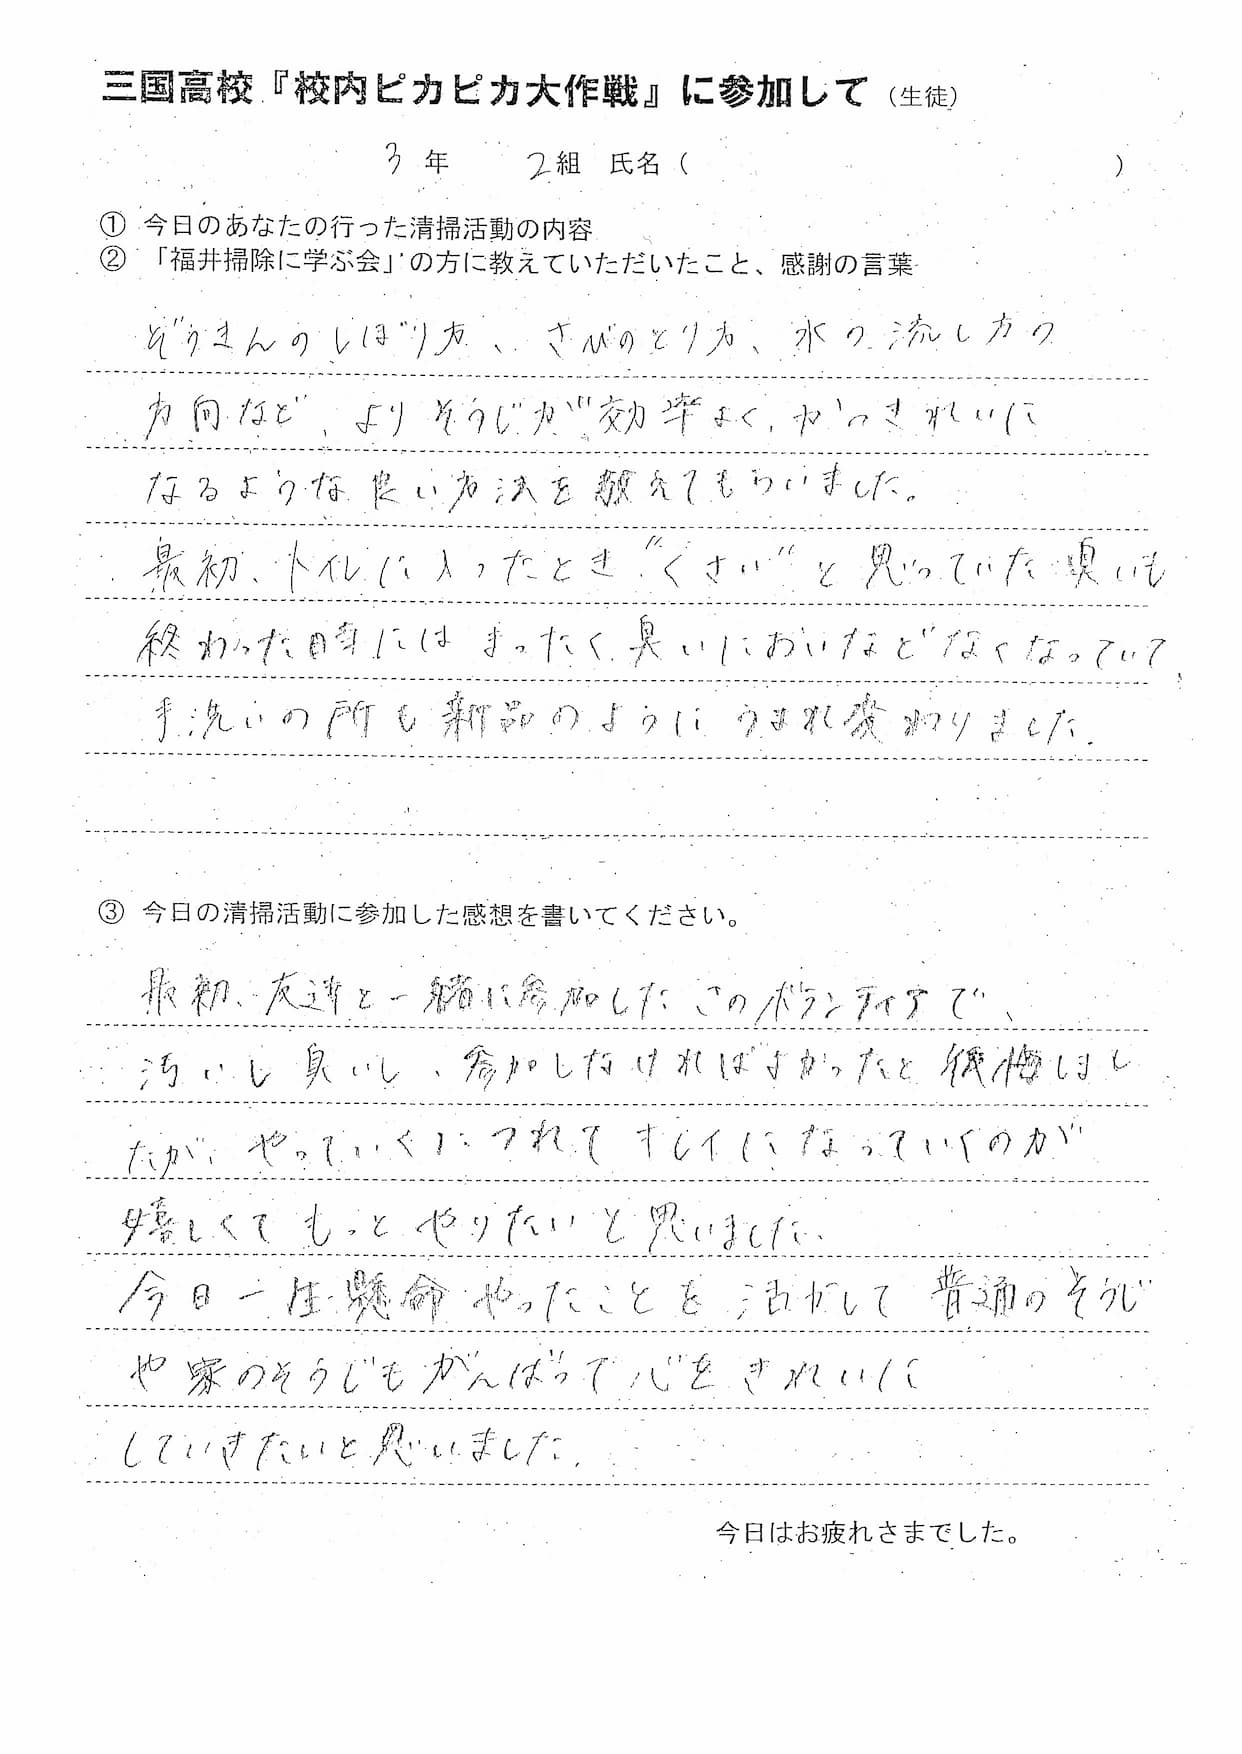 三国高校『校内ピカピカ大作戦』に参加して（生徒）
3年 2組 氏名（ ）
① 今日のあなたの行った清掃活動の内容
② 「福井掃除に学ぶ会」の方に教えていただいたこと、感謝の言葉
ぞうきんのしぼり方、さびのとり方、水の流し方の
方向など、よりそうじが効率よく、かつきれいに
なるような良い方法を教えてもらいました。
最初、トイレに入ったとき"くさい"と思っていた臭いも
終わった時にはまったく臭いにおいなどなくなっていて、
手洗いの所も新品のようにうまれ変わりました.
③ 今日の清掃活動に参加した感想を書いてください。
最初、友達と一緒に参加したこのボランティアで、
汚いし臭いし、参加しなければよかったと後悔しまし
たが、やっていくにつれてキレイになっていくのが
嬉しくてもっとやりたいと思いました.
今日一生懸命やったことを活かして普通のそうじ
や家のそうじもがんばって心をきれいに
していきたいと思いました.
今日はお疲れさまでした。